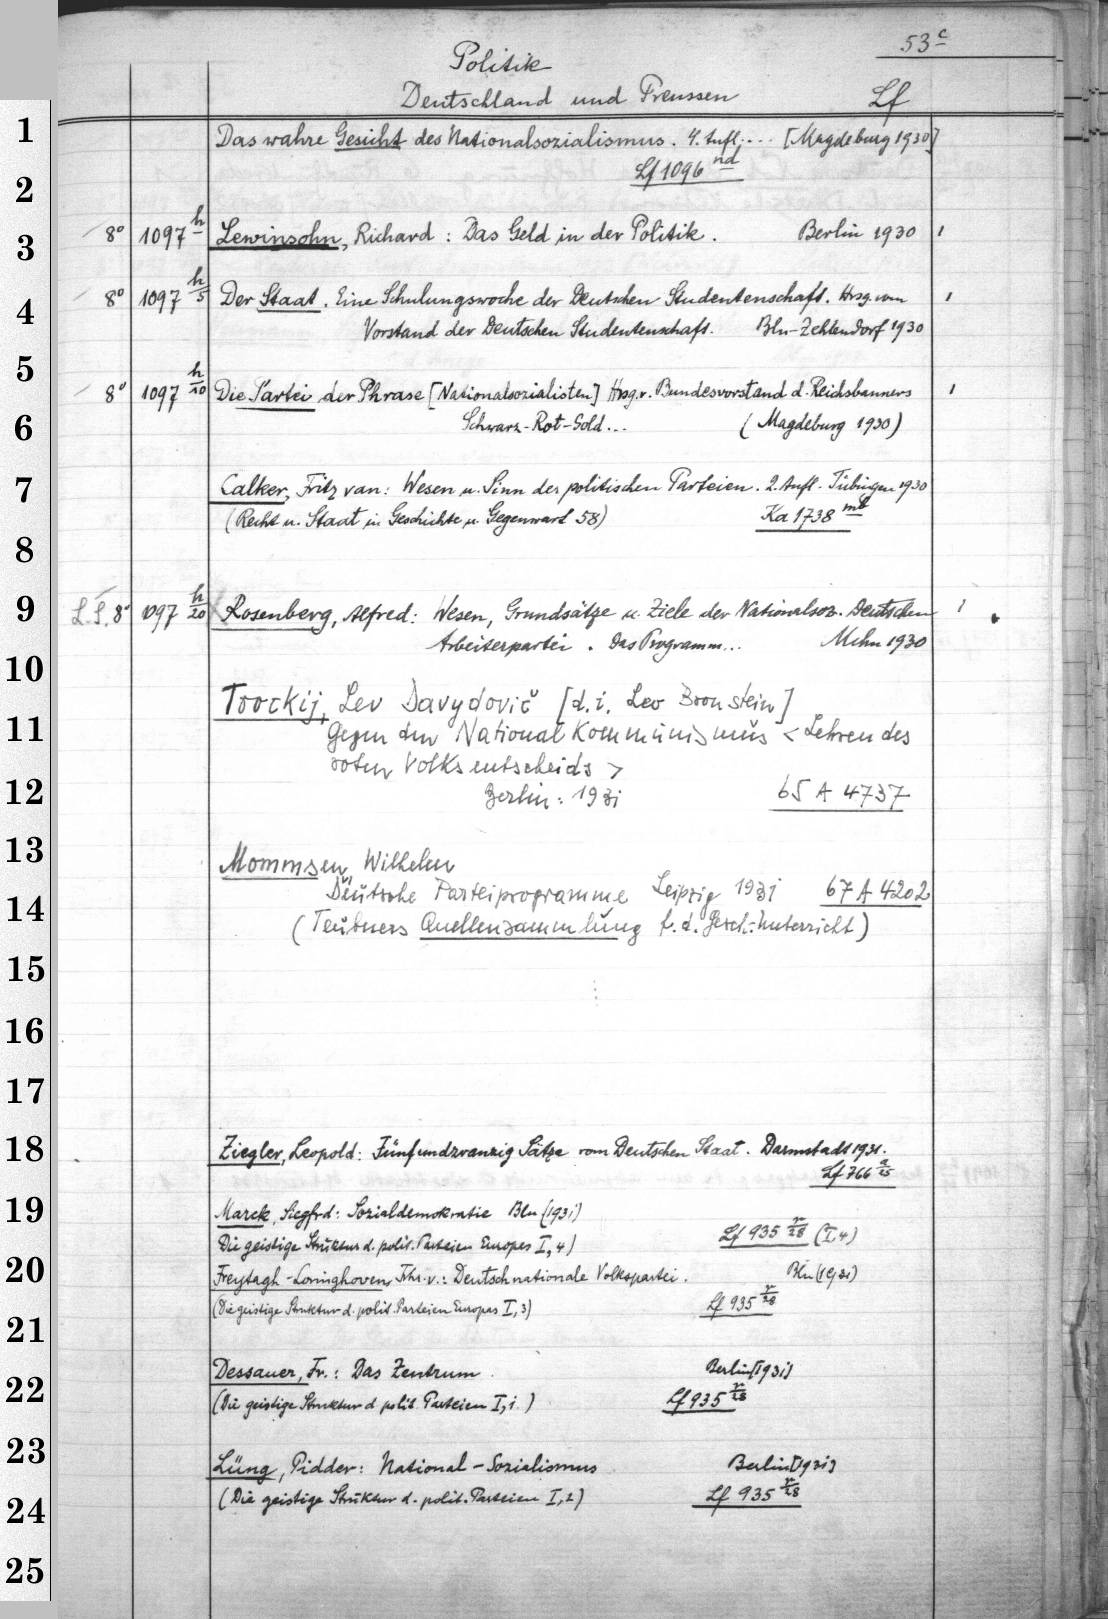 53c
Politik
Deutschland und Preussen Lf
1
Das wahre Gesicht des Nationalsozialismus. 4. Aufl. ... [Magdeburg 1930]
Lf 1096 nd
2
3
8° 1097 h Lewinsohn, Richard: Das Geld in der Politik. Berlin 1930 1
4
8° 1097 h/5 Der Staat. Eine Schulungswoche der Deutschen Studentenschaft. Hrsg. vom 1
Vorstand der Deutschen Studentenschaft. Bln-Zehlendorf 1930
5
8° 1097 h/10 Die Partei der Phrase [Nationalsozialisten] Hrsg. v. Bundesvorstand d. Reichsbanners 1
6
Schwarz-Rot-Gold... (Magdeburg 1930)
7
Calker, Fritz van: Wesen u. Sinn der politischen Parteien. 2. Aufl. Tübingen 1930
(Recht u. Staat in Geschichte u. Gegenwart 58) Ka 1738 mb
8
9
L.S. 8° 1097 h/20 Rosenberg, Alfred: Wesen, Grundsätze u. Ziele der Nationalsoz. Deutschen 1
Arbeiterpartei. Das Programm... Mchn 1930
10
Trockij, Lev Davydovič [d.i. Leo Bronstein]
11
Gegen den National Kommunismus < Lehren des
roten Volksentscheids >
12
Berlin: 1931 65 A 4737
13
Mommsen, Wilhelm
Deutsche Parteiprogramme Leipzig 1931 67 A 4202
14
(Teubners Quellensammlung f. d. Gesch.-Unterricht)
15
16
17
18
Ziegler, Leopold: Fünfundzwanzig Sätze vom Deutschen Staat. Darmstadt 1931.
Lf 766 a/25
19
Marck, Siegfrd: Sozialdemokratie Bln (1931)
Die geistige Struktur d. polit. Parteien Europas I, 4) Lf 935 r/28 (I,4)
20
Freytagh-Loringhoven, Frhr. v.: Deutschnationale Volkspartei. Bln (1931)
(Die geistige Struktur d. polit. Parteien Europas I, 3) Lf 935 r/28
21
22
Dessauer, Fr.: Das Zentrum. Berlin [1931]
(Die geistige Struktur d polit. Parteien I, 1.) Lf 935 r/28
23
Lüng, Pidder: National-Sozialismus Berlin [1931]
24
(Die geistige Struktur d. polit. Parteien I, 2) Lf 935 r/28
25